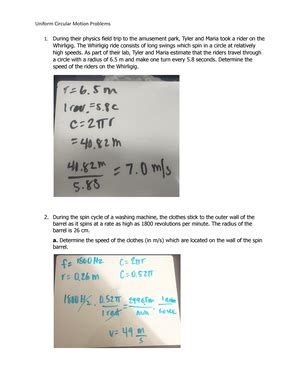 Uniform Circular Motion Problems
1. During their physics field trip to the amusement park, Tyler and Maria took a rider on the
Whirligig. The Whirligig ride consists of long swings which spin in a circle at relatively
high speeds. As part of their lab, Tyler and Maria estimate that the riders travel through
a circle with a radius of 6.5 m and make one turn every 5.8 seconds. Determine the
speed of the riders on the Whirligig.
r = 6.5 m
1 rev. = 5.8 c
C = 2πr
= 40.82 m
40.82 m
= 7.0 m/s
5.8 s
2. During the spin cycle of a washing machine, the clothes stick to the outer wall of the
barrel as it spins at a rate as high as 1800 revolutions per minute. The radius of the
barrel is 26 cm.
a. Determine the speed of the clothes (in m/s) which are located on the wall of the spin
barrel.
f = 1800 Hz C = 2πr
r = 0.26 m C = 0.52π
0.52π
1 rev
v = 49 m
s